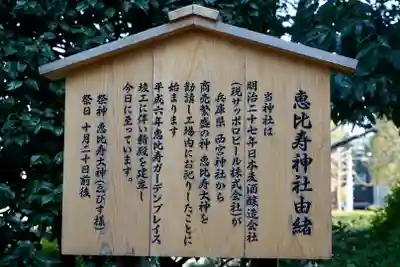 恵比寿神社由緒
当神社は
明治二十七年日本麦酒醸造会社
(現サッポロビール株式会社)が
兵庫県 西宮神社から
商売繁盛の神 恵比寿大神を
勧請し工場内にお祀りしたことに
始まります
平成六年恵比寿ガーデンプレイス
竣工に伴い新殿を建立し
今日に至っています。
祭神 恵比寿大神(えびす様)
祭日 十月二十日前後